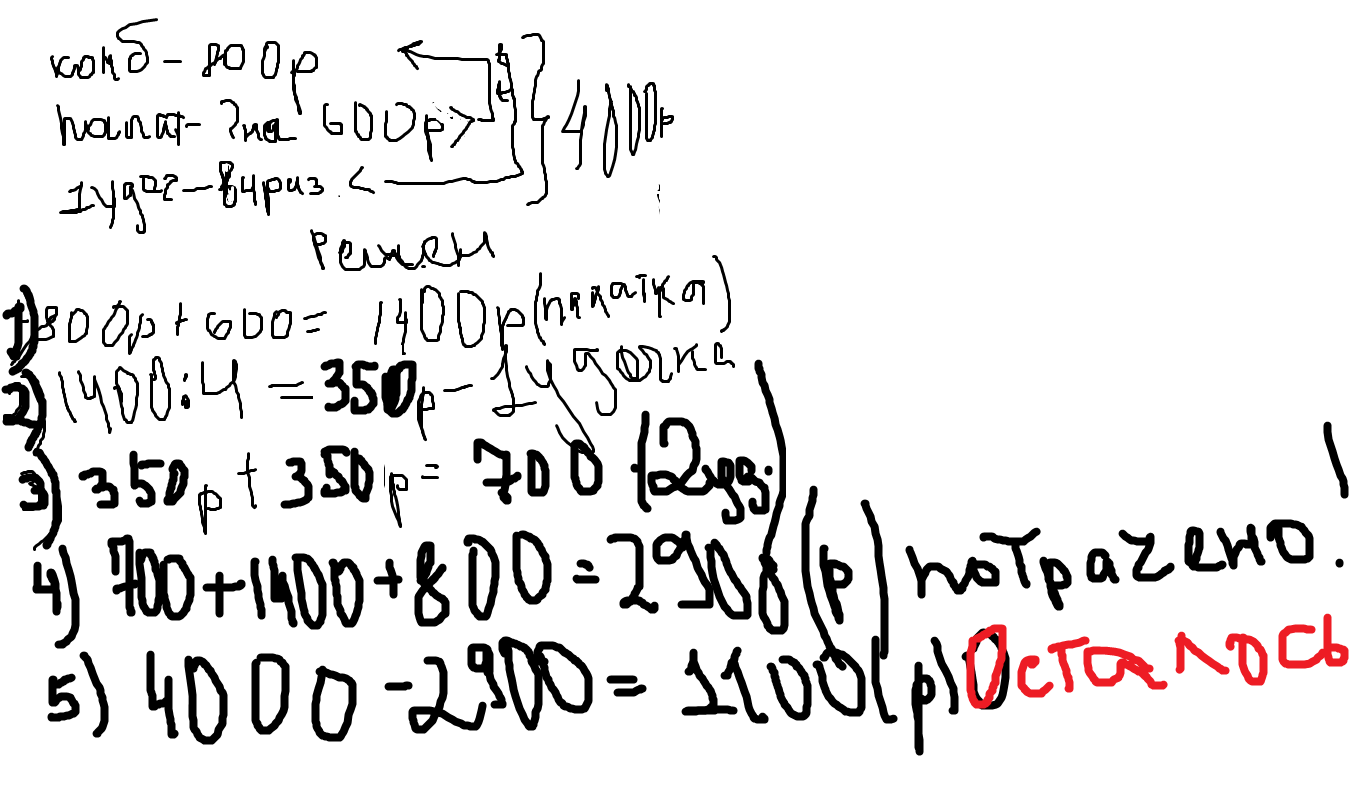 комб - 800р
палат - ? на 600р >
1 удоч - в 4 раз. <
} 4000р
Решен
1) 800р + 600 = 1400р (палатка)
2) 1400 : 4 = 350р - 1 удочка
3) 350р + 350р = 700 (2 уд.)
4) 700 + 1400 + 800 = 2900 (р) потрачено.
5) 4000 - 2900 = 1100 (р) Осталось